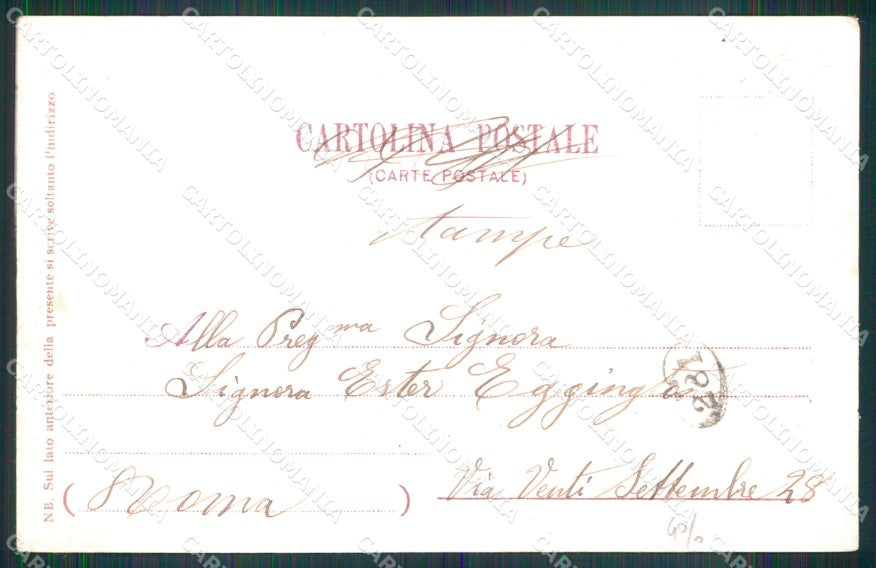 CARTOLINA POSTALE
(CARTE POSTALE)
Stampe
Alla Preg ma Signora
Signora Ester Eggington
281
( Roma )
Via Venti Settembre 28
NB. Sul lato anteriore della presente si scrive soltanto l'indirizzo
CARTOLINOMANIA